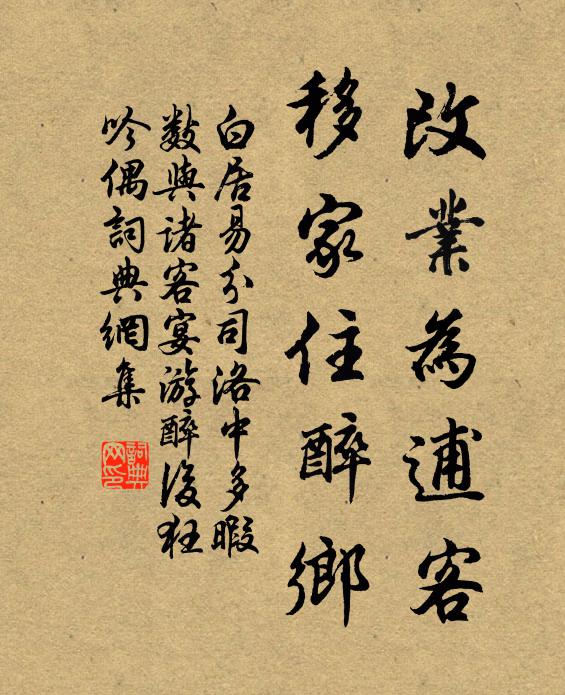 改業為逋客
移家住醉鄉
白居易分司洛中多暇
數與諸客宴游醉後狂
吟偶詞典網集
詞典
网印